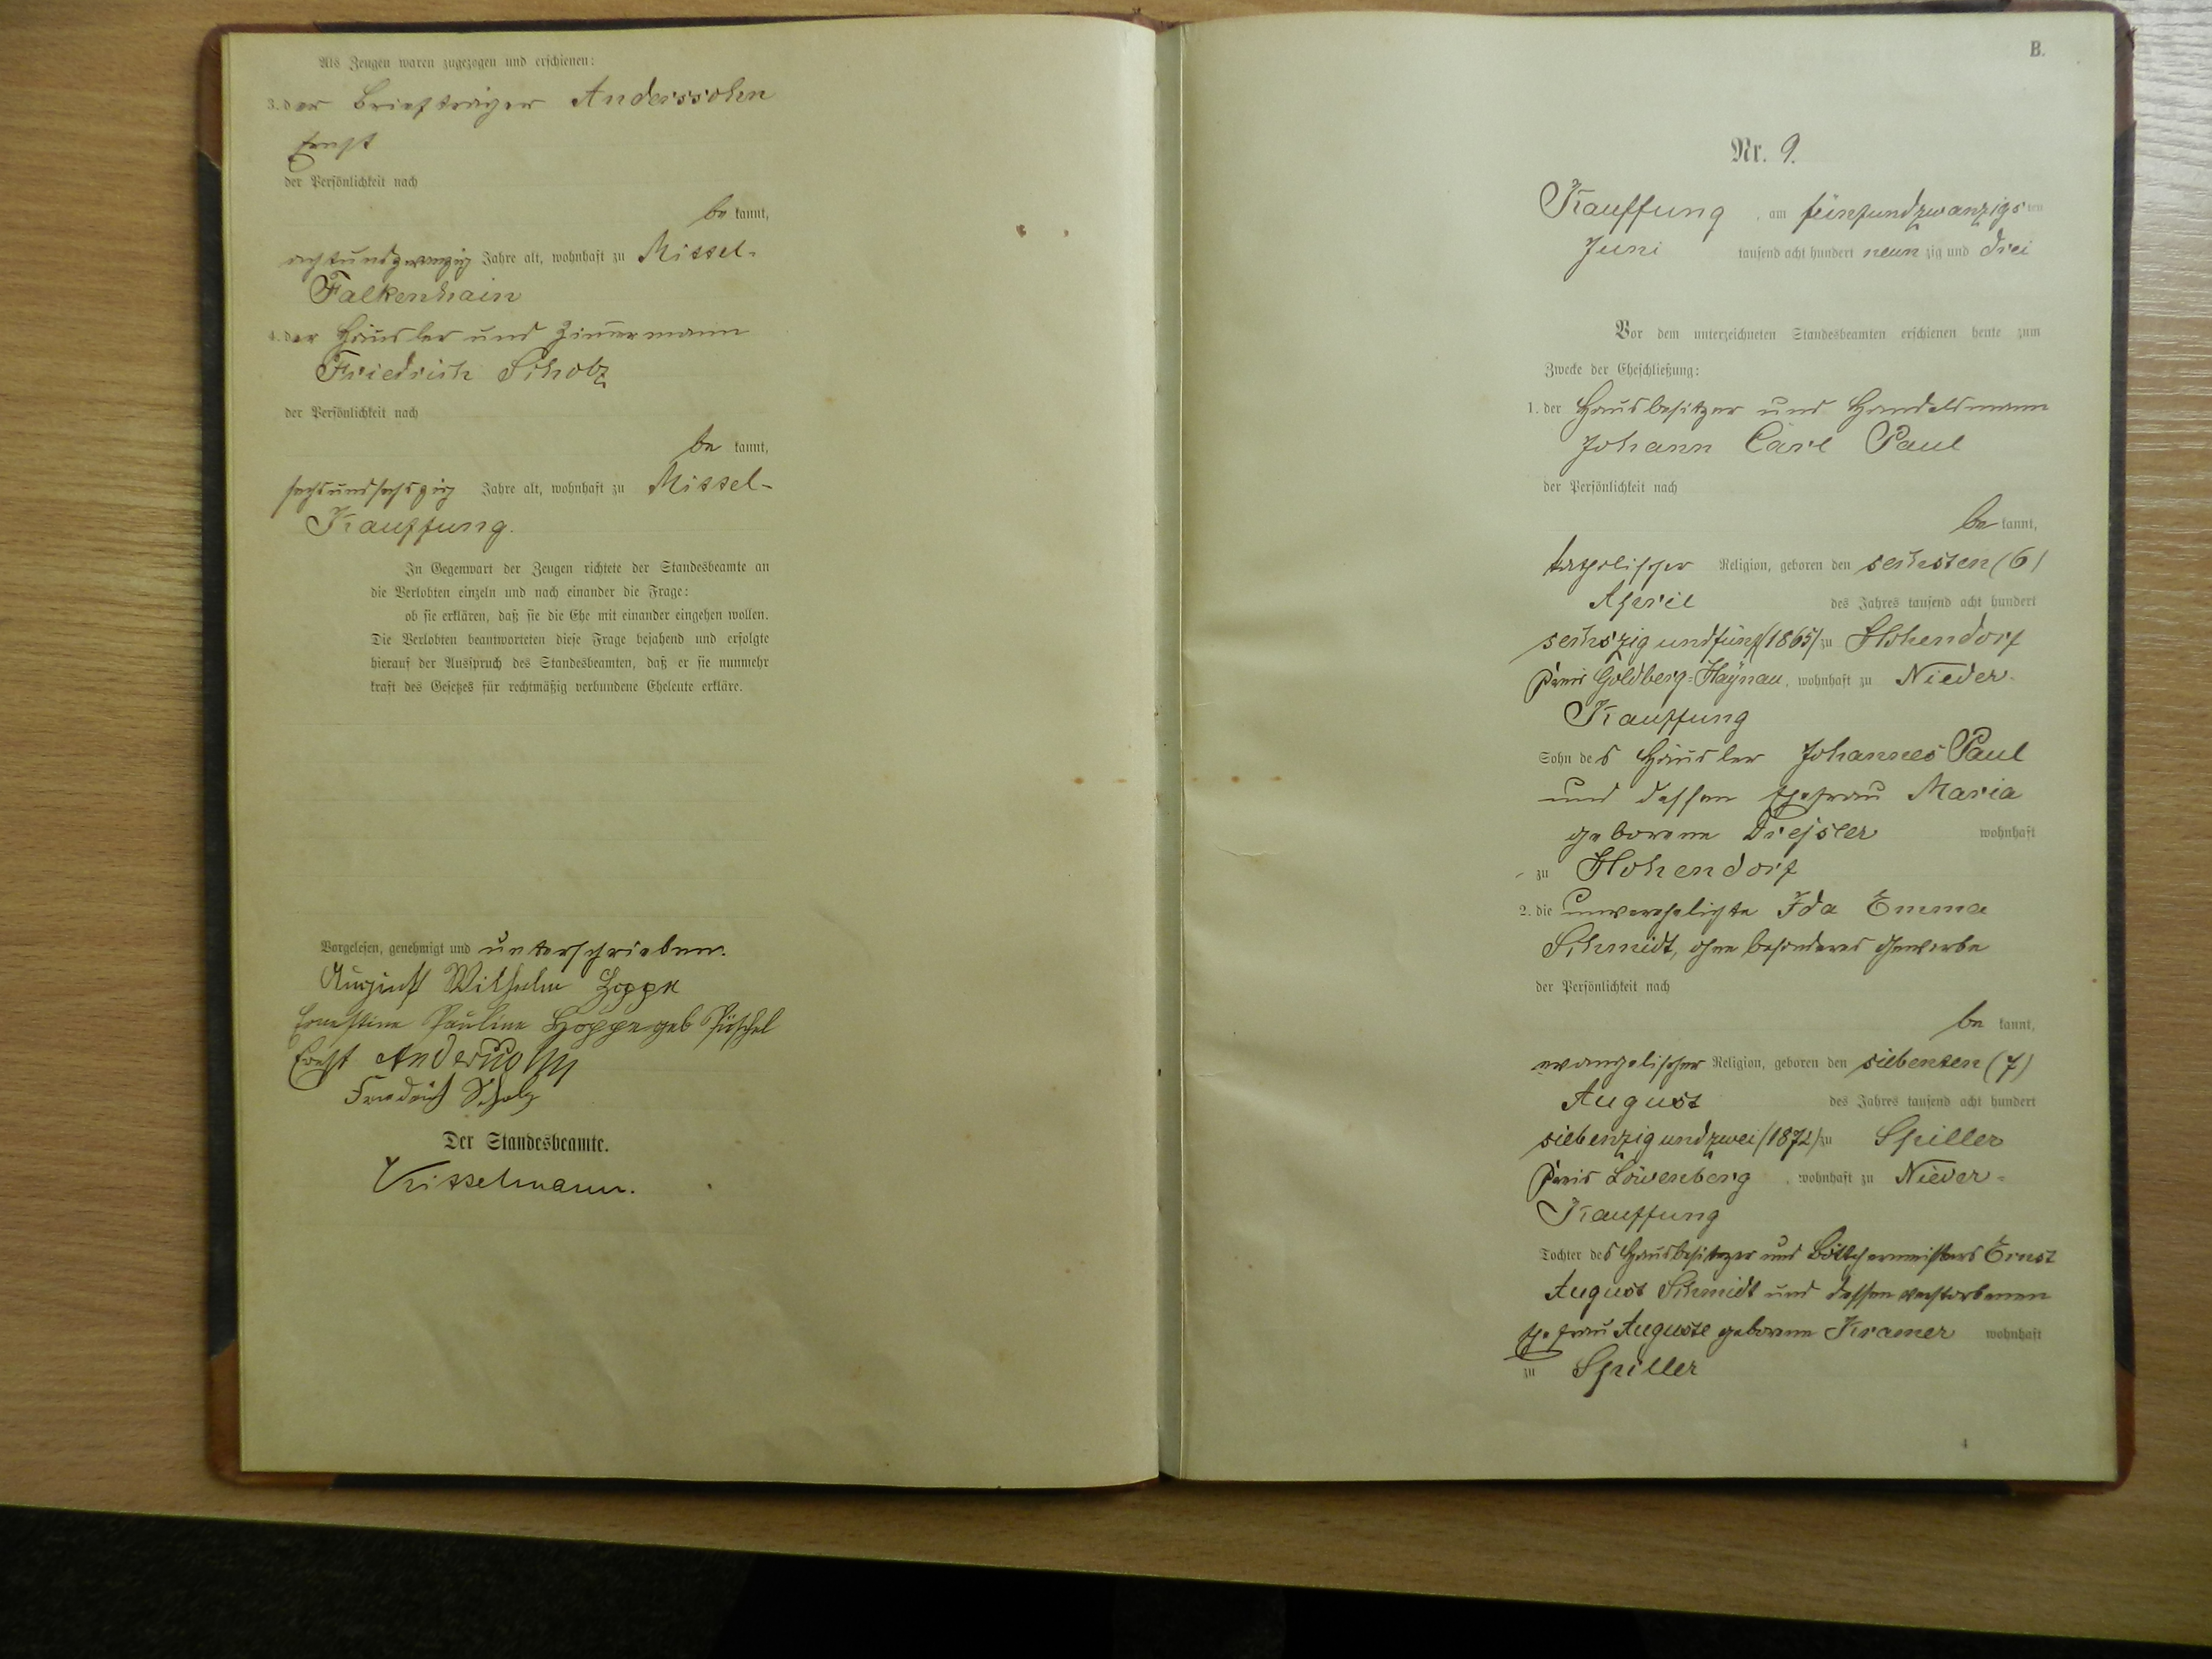 Als Zeugen waren zugezogen und erschienen:
3. der Briefträger Anderssohn
Ernst
der Persönlichkeit nach
be kannt,
achtundzwanzig Jahre alt, wohnhaft zu Mittel-
Falkenhain
4. der Häusler und Zim̄ermann
Friedrich Scholz
der Persönlichkeit nach
be kannt,
sechsundsechszig Jahre alt, wohnhaft zu Mittel-
Kauffung.
In Gegenwart der Zeugen richtete der Standesbeamte an
die Verlobten einzeln und nach einander die Frage:
ob sie erklären, daß sie die Ehe mit einander eingehen wollen.
Die Verlobten beantworteten diese Frage bejahend und erfolgte
hierauf der Ausspruch des Standesbeamten, daß er sie nunmehr
kraft des Gesetzes für rechtmäßig verbundene Eheleute erkläre.
Vorgelesen, genehmigt und unterschrieben.
August Wilhelm Hoppe
Ernestine Pauline Hoppe geb Püschel
Ernst Anderssohn
Friedrich Scholz
Der Standesbeamte.
Kittelmann.
B.
Nr. 9.
Kauffung, am fünfundzwanzigsten
Juni tausend acht hundert neunzig und drei
Vor dem unterzeichneten Standesbeamten erschienen heute zum
Zwecke der Eheschließung:
1. der Hausbesitzer und Handelsmann
Johann Carl Paul
der Persönlichkeit nach
be kannt,
katholischer Religion, geboren den sechsten (6)
April des Jahres tausend acht hundert
sechszig und fünf (1865) zu Hohendorf
Kreis Goldberg-Haynau, wohnhaft zu Nieder-
Kauffung
Sohn des Häusler Johannes Paul
und dessen Ehefrau Maria
geborene wohnhaft
zu Hohendorf
2. die unverehelichte Ida Emma
Schmidt, ohne besonderes Gewerbe
der Persönlichkeit nach
be kannt,
evangelischer Religion, geboren den siebenten (7)
August des Jahres tausend acht hundert
siebenzig und zwei (1872) zu Spiller
Kreis Löwenberg, wohnhaft zu Nieder-
Kauffung
Tochter des Hausbesitzer und Böttchermeisters Ernst
August Schmidt und dessen verstorbenen
Ehefrau Auguste geborene Kramer wohnhaft
zu Spiller
4